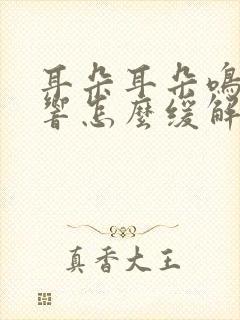 耳朵耳朵鳴
響怎麼緩解
真香大王